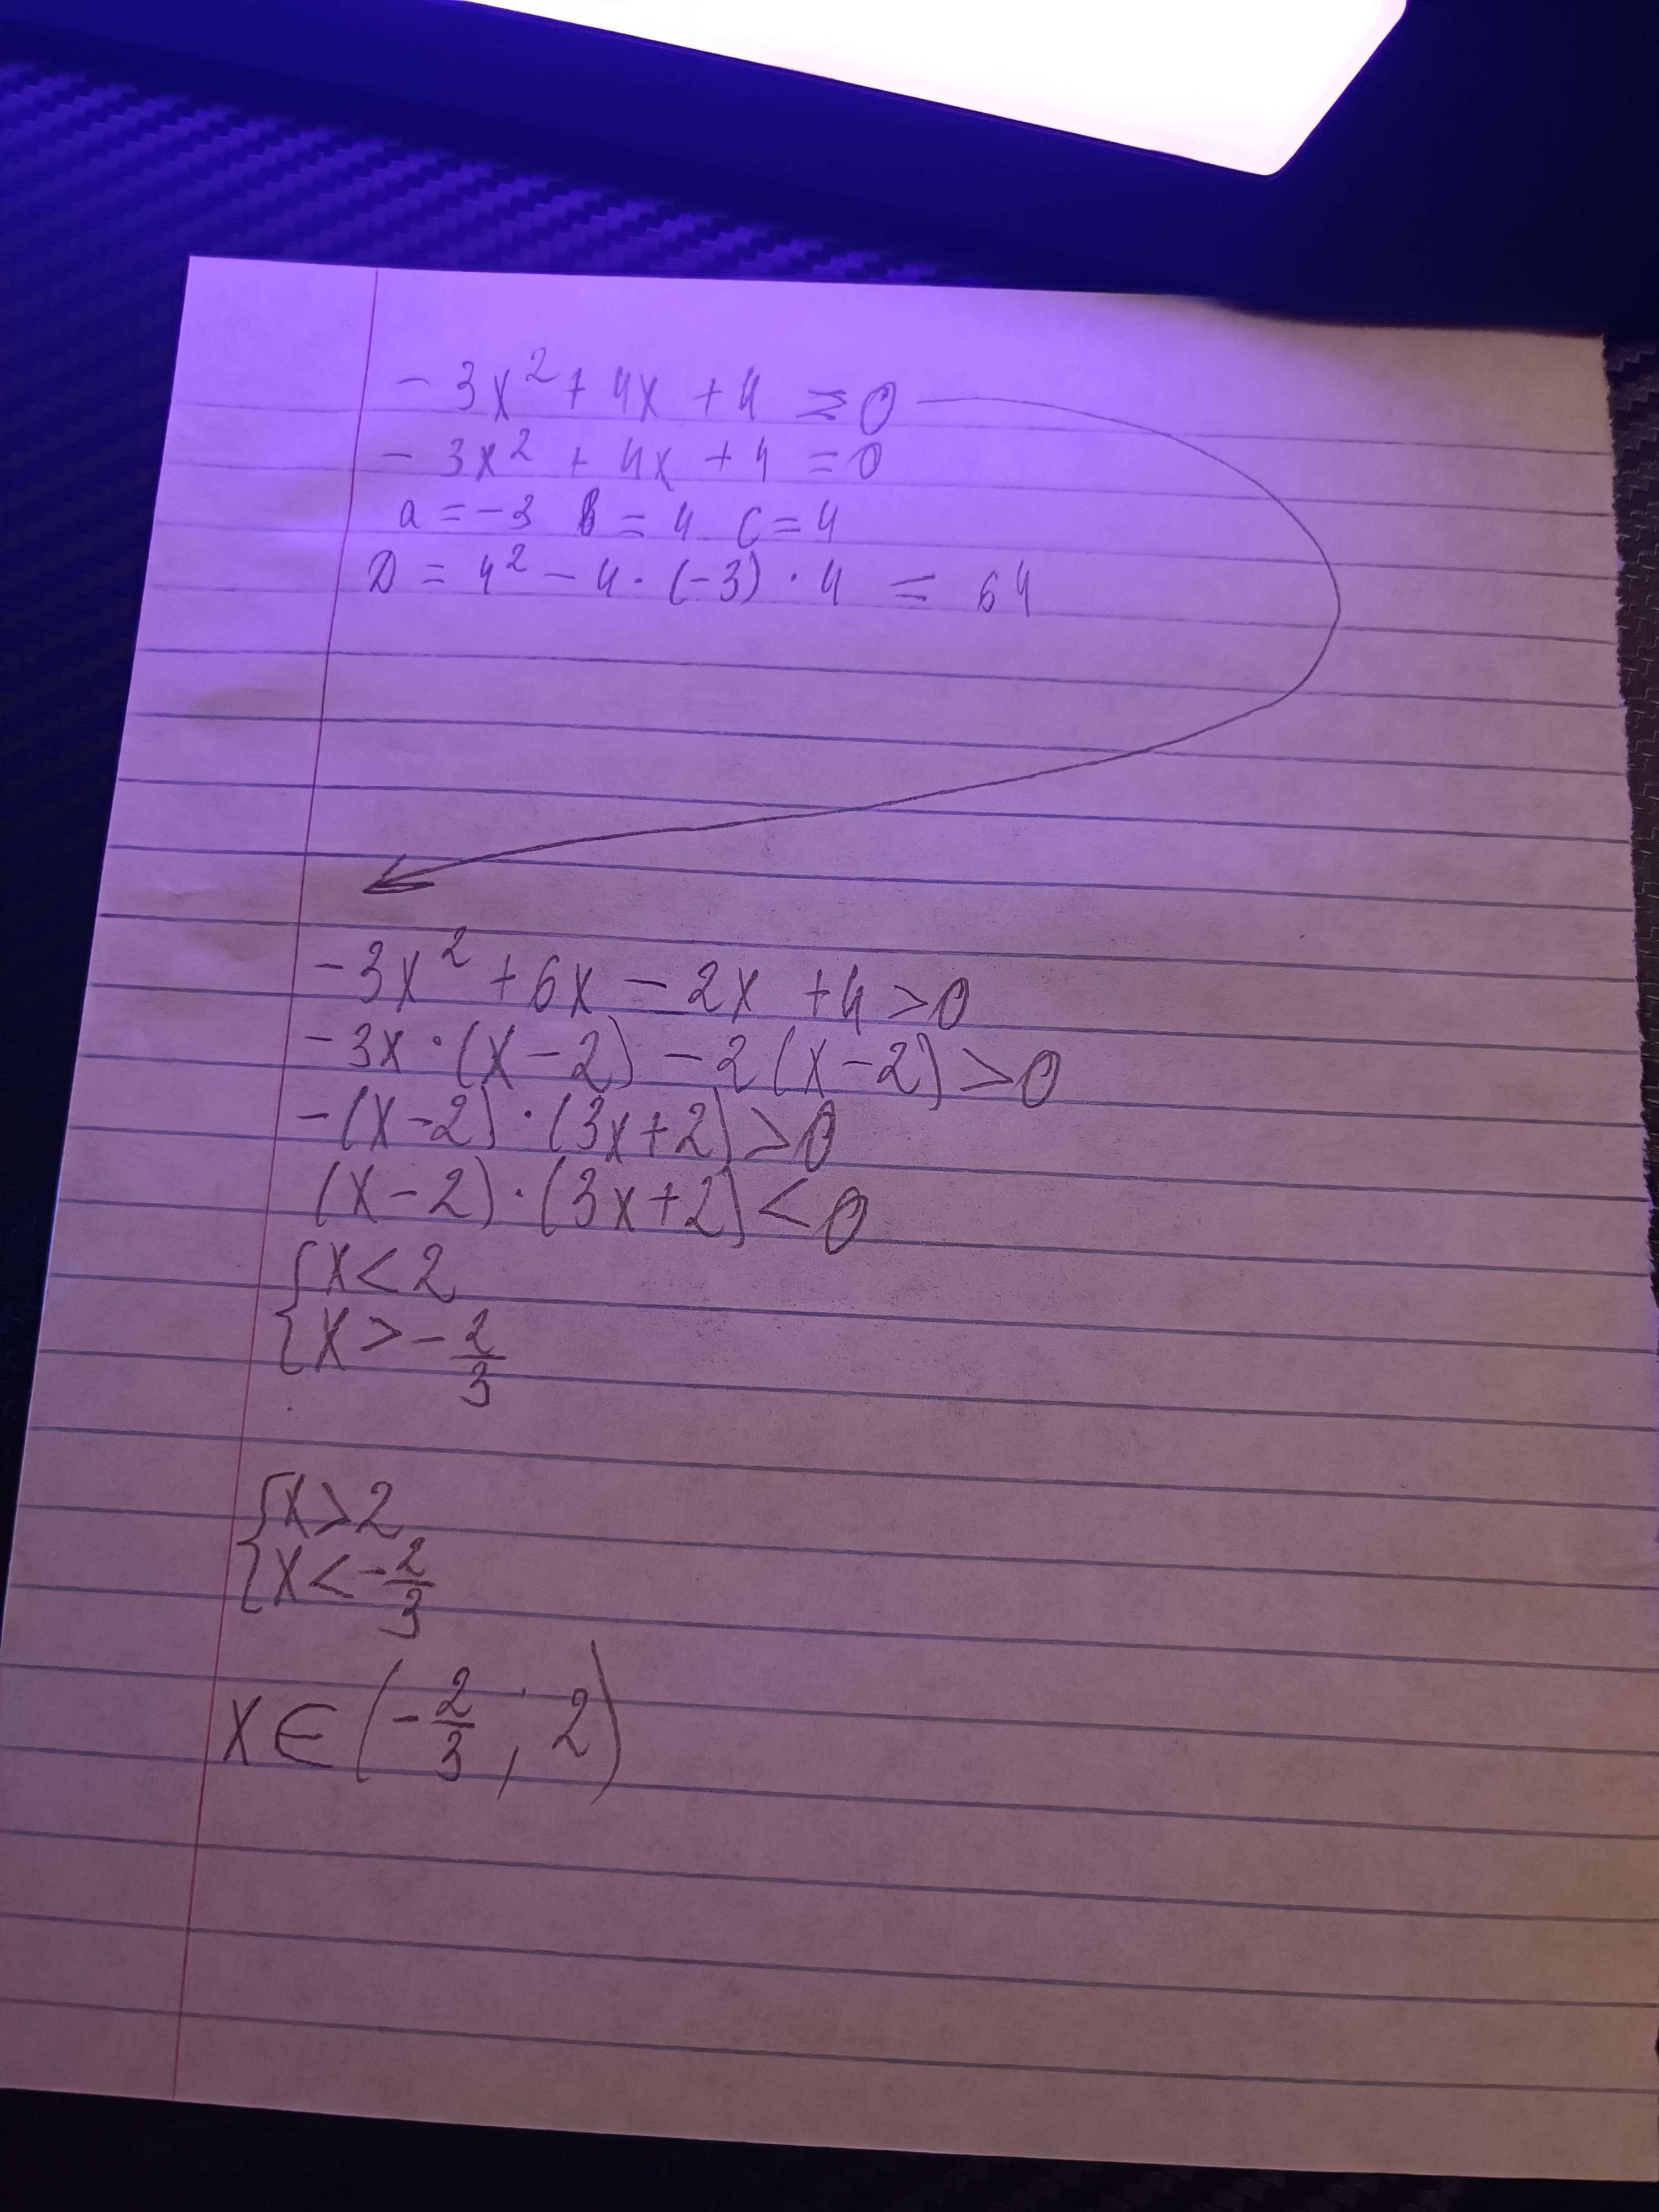 -3x² + 4x + 4 ≥ 0
-3x² + 4x + 4 = 0
a = -3 b = 4 c = 4
D = 4² - 4 · (-3) · 4 = 64
-3x² + 6x - 2x + 4 > 0
-3x · (x - 2) - 2(x - 2) > 0
-(x - 2) · (3x + 2) > 0
(x - 2) · (3x + 2) < 0
{ x < 2
{ x > -2/3
{ x > 2
{ x < -2/3
x ∈ (-2/3, 2)